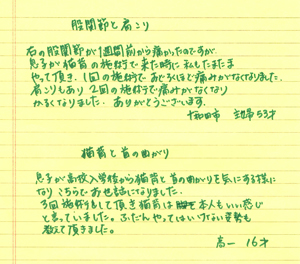 股関節と肩こり
右の股関節が1週間前から痛かったのですが
息子が猫背の施術で来た時に私もたまたま
やって頂き、1回の施術でおどろくほど痛みがなくなりました。
肩こりもあり2回の施術で痛みがなくなり
かるくなりました。ありがとうございます。
十和田市 主婦 53才
猫背と首の曲がり
息子が高校入学後から猫背と首のまがりを気にする様に
なりこちらでお世話になりました。
3回施術して頂き猫背は本人もいい感じ
と言っていました。ふだんやってはいけない姿勢も
教えて頂きました。
高一 16才